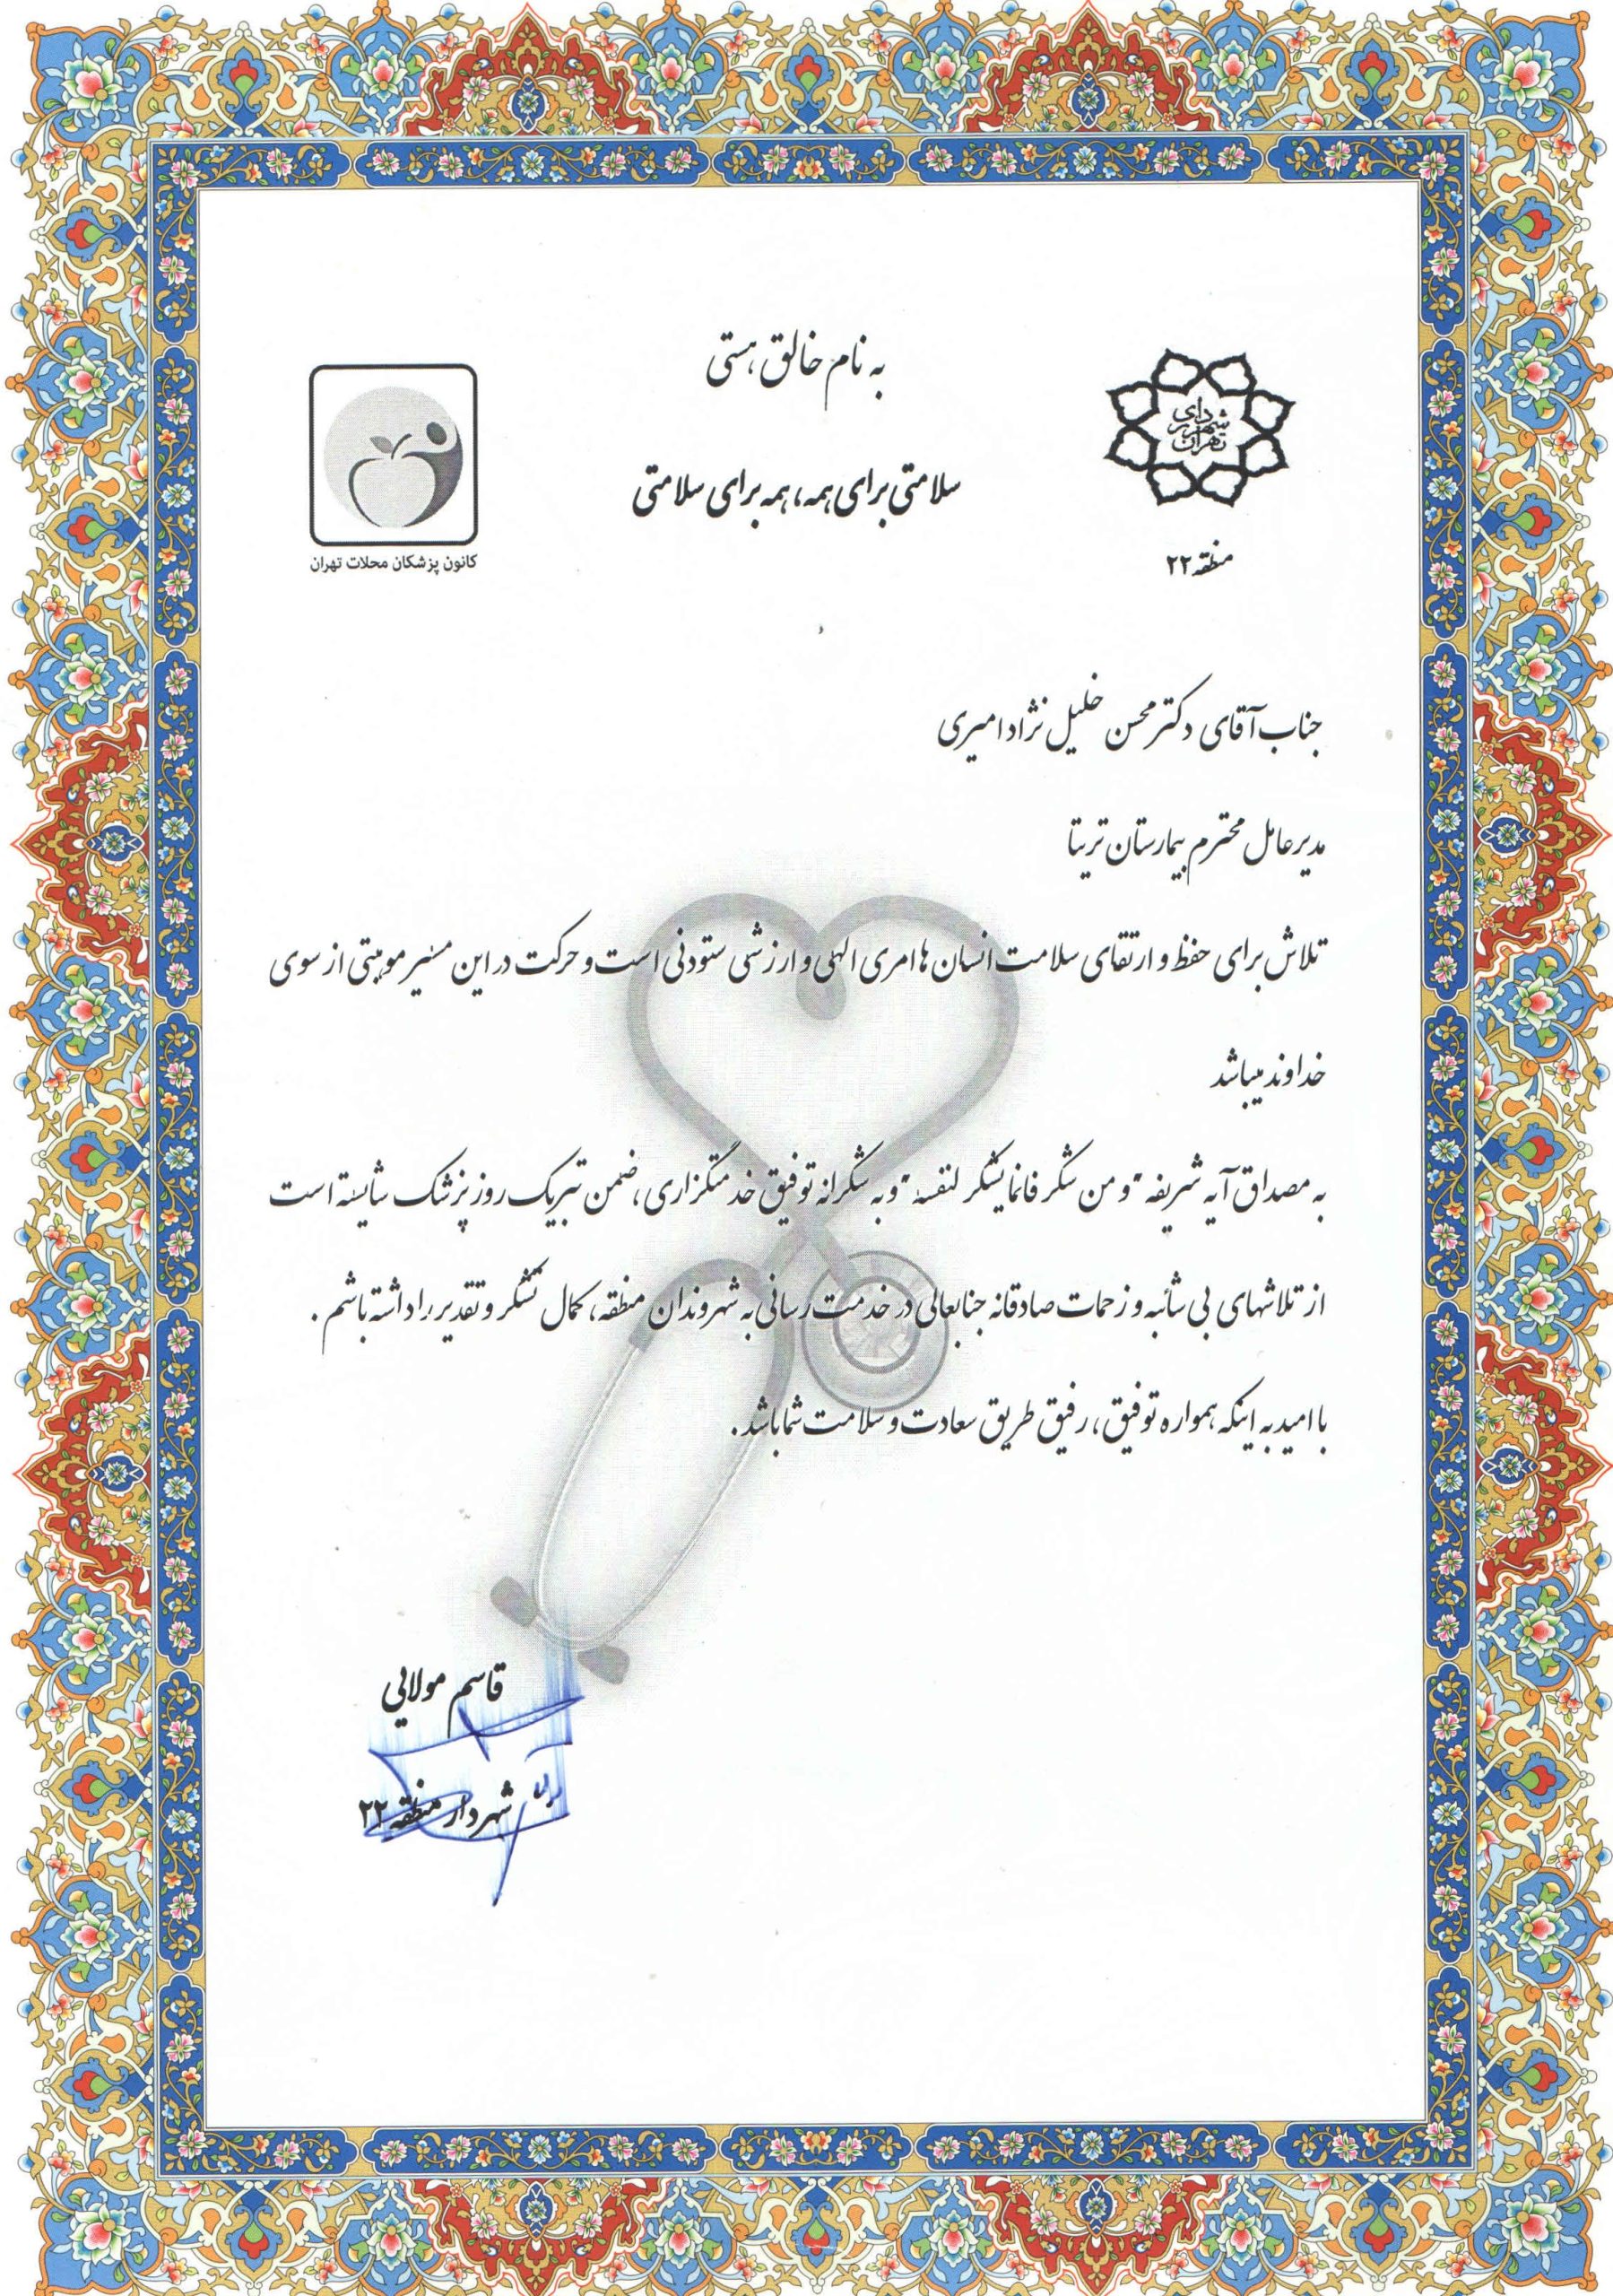 به نام خالق هستی
سلامتی برای همه، همه برای سلامتی
شهرداری
تهران
منطقه ۲۲
کانون پزشکان محلات تهران
جناب آقای دکتر محسن خلیل نژاد امیری
مدیرعامل محترم بیمارستان تریتا
تلاش برای حفظ و ارتقای سلامت انسان ها امری الهی و ارزشی ستودنی است و حرکت در این مسیر موهبتی از سوی
خداوند میباشد
به مصداق آیه شریفه "و من شکر فانما یشکر لنفسه" و به شکرانه توفیق خدمتگزاری، ضمن تبریک روز پزشک شایسته است
از تلاشهای بی شائبه و زحمات صادقانه جنابعالی در خدمت رسانی به شهروندان منطقه، کمال تشکر و تقدیر را داشته باشم.
با امید به اینکه همواره توفیق، رفیق طریق سعادت و سلامت شما باشد.
قاسم مولایی
شهردار منطقه ۲۲